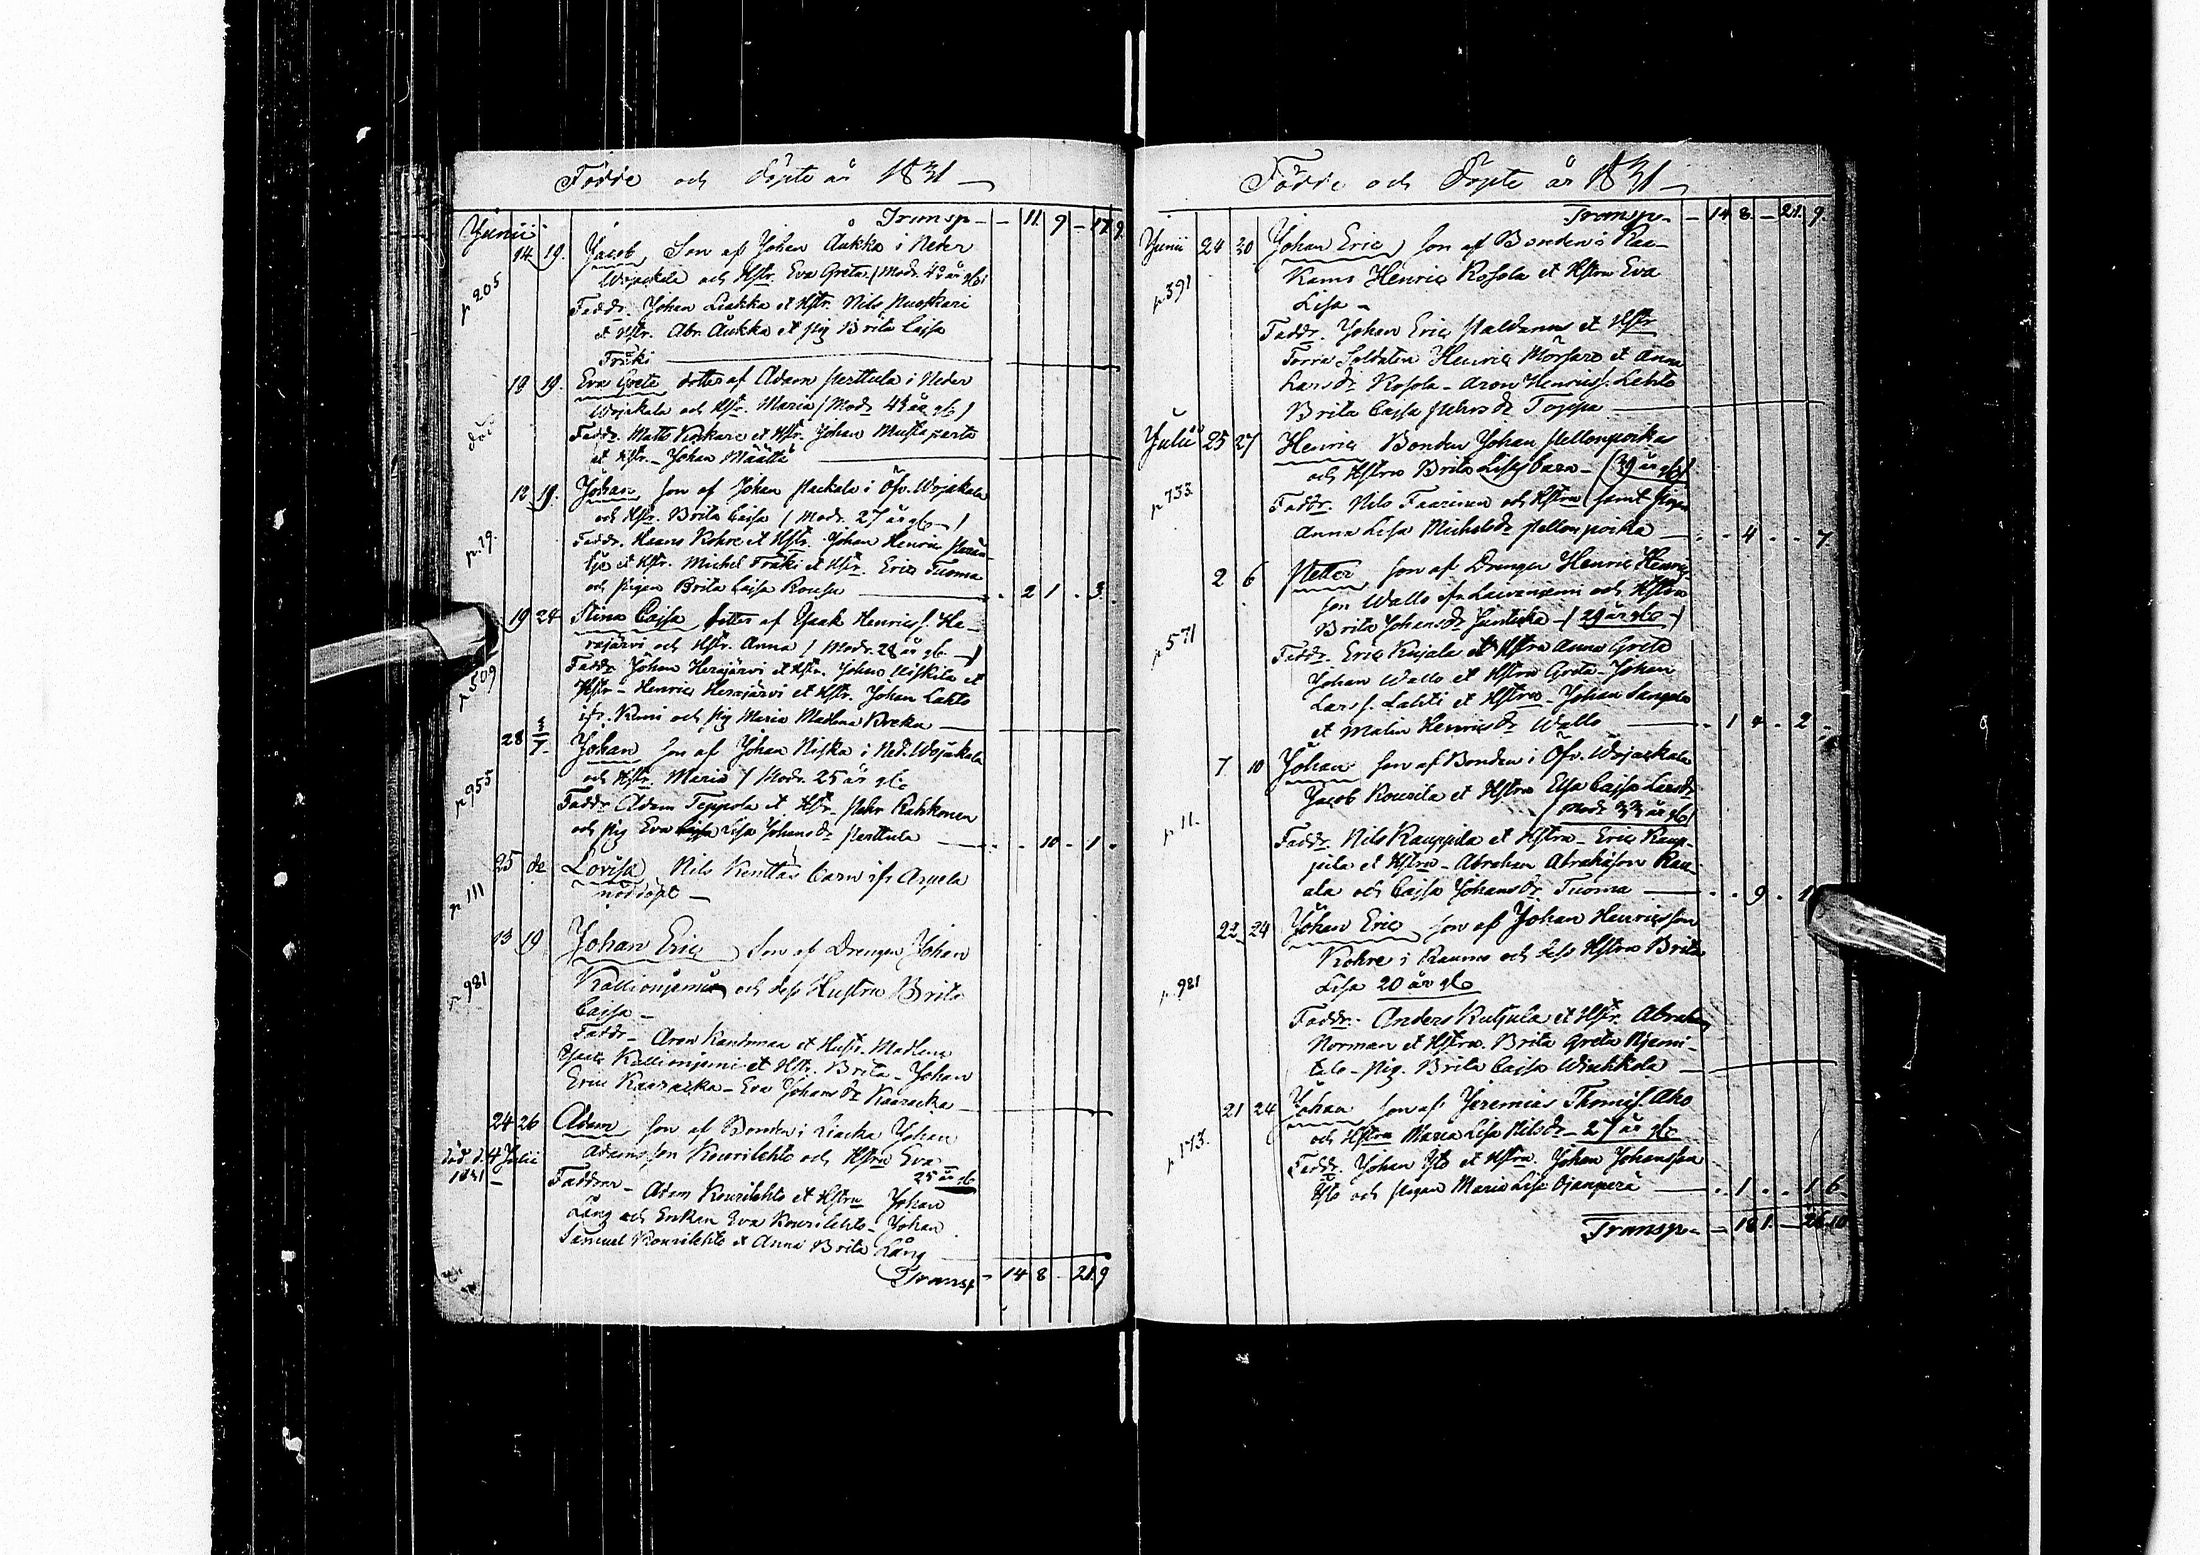 Födde och Döpte år 1831
Transp - - 11 9 - 17 9
Junii 14 19. Jacob Son af Johan Aukko i Neder
p 205 Wojakala och Hstr. Eva Greta / Modr. 42 år gl.
Faddr. Johan Liakka et Hstr. Nils Nuoskari
et Hstr. Abr. Aukka et pig Brita Cajsa
Fräki
18 19. Eva Greta dotter af Adam Perttula i Neder
Wojakala och Hstr. Maria / Modr 43 år gl /
Faddr. Matts Koskare et Hstr. Johan Mustaparta
et Hstr. - Johan Määttä
12 19. Johan son af Johan Packala i Öfv. Wojakala
och Hstr. Brita Cajsa / Modr. 27 år gl - /
p.19. Faddr. Haans Kohre et Hstr. Johan Henric
et Hstr. Michel Fräki et Hstr. Eric Tuoma
och Pigan Brita Cajsa - - 2 1 - 3
19 24 Stina Cajsa dotter af Isaak Henricss. He-
rajärvi och Hstr. Anna / Modr. 28 år gl. - /
p 509 Faddr Johan Herajärvi et Hstr. Johan Niskila et
Hstr - Henric Herajärvi et Hstr. Johan Lahto
ifr. Kemi och pig Maria Madlena Kreku
28 3/7. Johan son af Johan Niska i Ned. Wojakala
p 955 och Hstr. Maria / Modr. 25 år gl.
Faddr Adam Teppola et Hstr. Pehr Rahkonen
och pig Eva Lisa Johansdr Perttula - - 10 - 1
25 do Lovisa Nils Kenttäs barn ifr
p 111 nöddöpt -
13 19 Johan Eric Son af Drengen Johan
p 981 Kallioniemi och dess Hustru Brita
Cajsa -
Faddr - Aron et Hustr. Madlena
Isaac Kallioniemi et Hstr. Brita - Johan
Eric Kaaracka - Eva Johansdr Kaaracka
24 26 Adam son af Bonden i Liacka Johan
död d. 4 Julii Adamsson Kourilehto och Hstru Eva
1831 - 25 år gl
Faddrar - Adam Kourilehto et Hstru Johan
Lång och Enkan Eva Kourilehto - Johan
Samuel Kourilehto et Anna Brita Lång
Transp - 14 8 - 21 9
Födde och Döpte år 1831
Transp - - 14 8 - 21. 9
Junii 24 30 Johan Eric son af Bonden i Rau-
p. 391 Henric Rosola et Hstru Eva
Lisa -
Faddr. Johan Eric et Hstr
Förra Soldaten Henric et Anna
Larsdr Rosola - Aron Henricss. Lehto
Brita Cajsa Pehrsdr Toppa
Julii 25 27 Henric Bonden Johan Pellonpoikas
och Hstru Brita Lisas barn - (39 år gl)
p 733. Faddr. Nils Taarinen och Hstru samt pigan
Anna Lisa Michelsdr Pellonpoika - - 4 - - 7.
2 6 Petter son af Drengen Henric Henric-
son Wallo ifr och Hstru
Brita Johansdr Juntikka - / 29 år gl - /
p 571 Faddr. Eric Kujala et Hstru Anna Greta
Johan Wallo et Hstru Greta - Johan
Larss. Lahti et Hstru - Johan
et Malin Henricsdr Wallo - 1 4 - 2 -
7 10 Johan son af Bonden i Öfv. Wojackala
Jacob Kourila et Hstru Elsa Cajsa Larsdr
/ Modr 33 år gl /
p 11. Faddr Nils Kauppila et Hstru - Eric Kaup-
pila et Hstru - Abraham Abrahamson Rau-
ala och Cajsa Johansdr Tuoma - - 9 - 1
22 24 Johan Eric son af Johan Henricsson
Kohre i Raumo och dess Hstru Brita
p. 981 Lisa 20 år gl.
Faddr. Anders Kutjula et Hstr. Abraham
Norman et Hstru. Brita Greta Njemi-
talo - Pig. Brita Cajsa
21 24 Johan son af Jeremias Thomss. Aho
och Hstru Maria Lisa Nilsdr - 27 år gl.
p 173. Faddr. Johan Ylö et Hstru. Johan Johansson
Ylö och Pigan Maria Lisa Ojanperä - - 1 - - 1 6
Transp - - 18 1. - 26 10